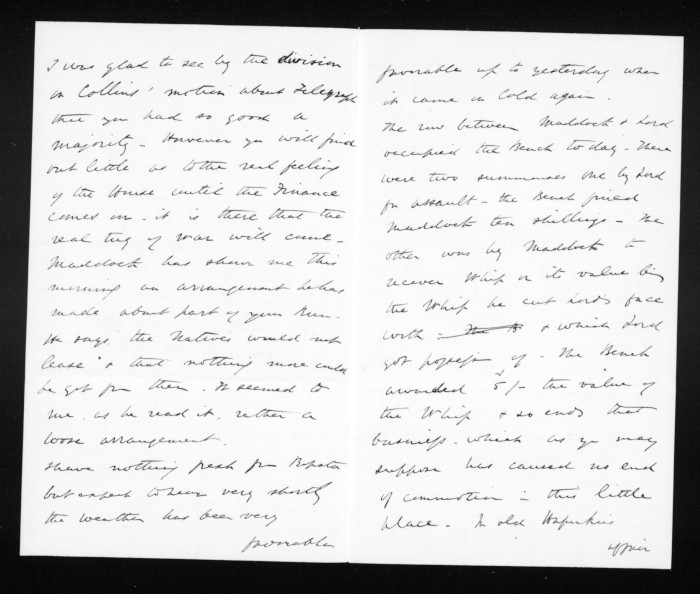 I was glad to see by the division
on Collins' motion about Telegraph
that you had so good a
majority - However you will find
out little as to the real feeling
of the House until the Finance
comes on - it is there that the
real tug of war will come -
Maddock has shewn me this
morning an arrangement he has
made about part of your Run -
He says the Natives would not
lease & that nothing more could
be got from them. It seemed to
me, as he read it, rather a
loose arrangement.
I have nothing fresh from
but expect to hear very shortly
the weather has been very
favorable
favorable up to yesterday when
it came on Cold again.
The row between Maddock & Lord
occupied the Bench to day - There
were two summonses one by Lord
for assault - the Bench fined
Maddock ten shillings - The
other was by Maddock to
recover Whip or its value being
the Whip he cut Lords face
with - & which Lord
got possession of - The Bench
awarded 5/- the value of
the Whip & so ends that
business - which as you may
suppose has caused no end
of commotion in this little
place - In old
affair